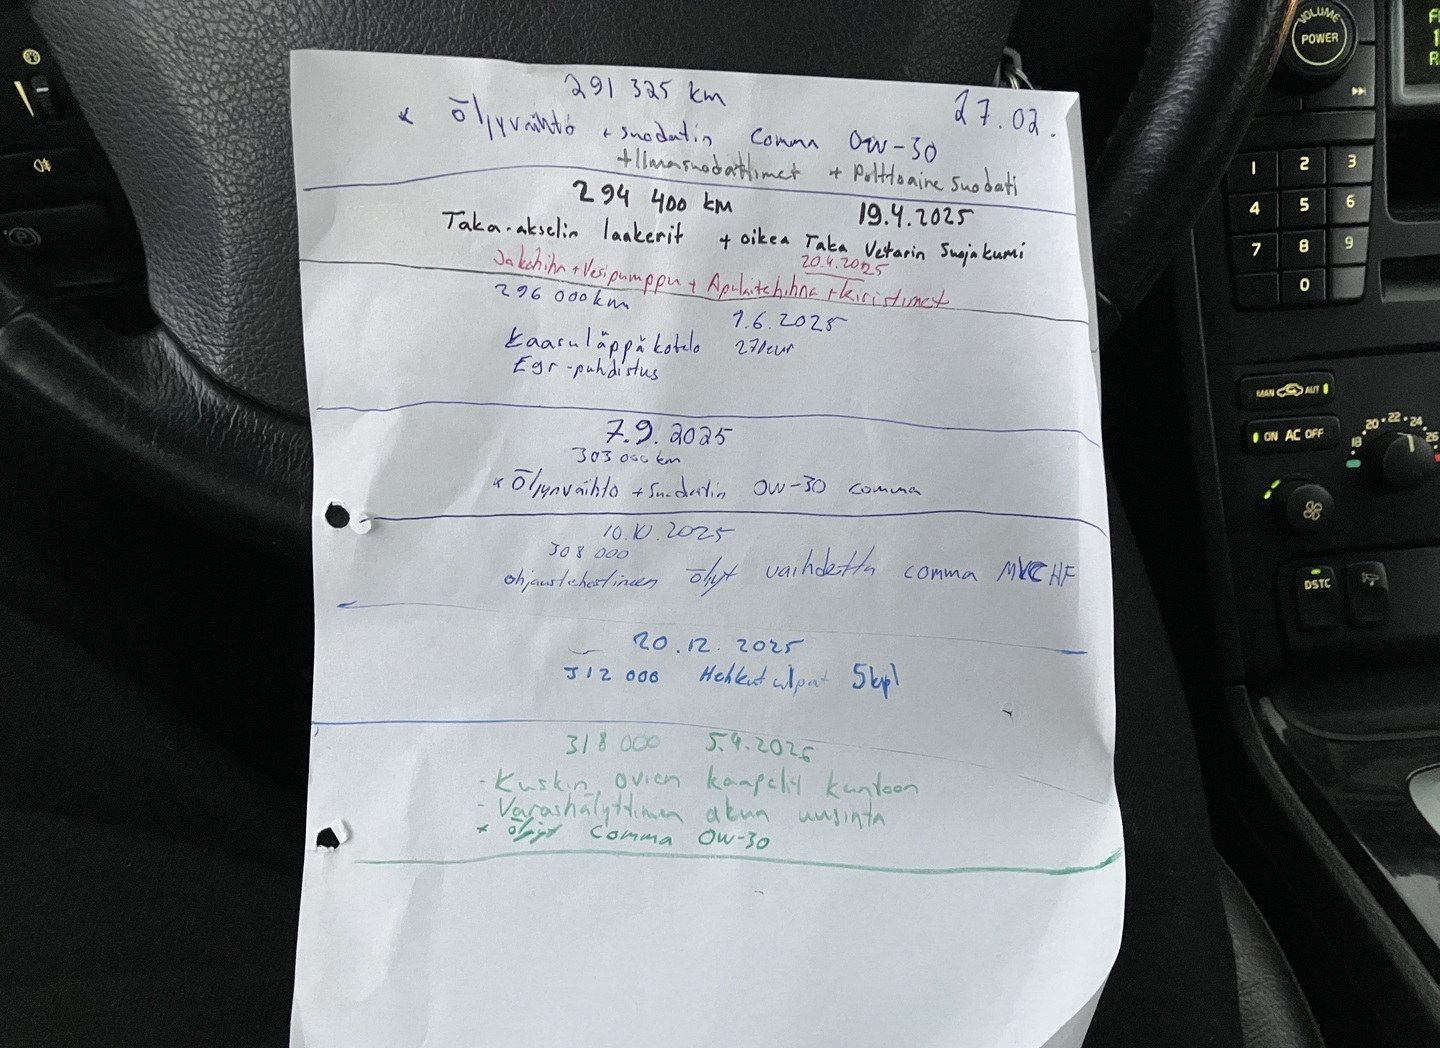 291 325 km
27.02.
x Öljyvaihto + suodatin Comma 0W-30
+Ilmasuodattimet + Polttoaine suodati
294 400 km 19.4.2025
Taka-akselin laakerit + oikea Taka Vetarin Suojakumi
20.4.2025
Jakohihn + Vesipumppu + Apulaitehihna + kiristimet
296 000km
1.6.2025
Kaasuläppä kotelo 271eur
Egr-puhdistus
7.9.2025
303 000 km
x Öljynvaihto + Suodatin 0W-30 comma
10.10.2025
308 000
ohjaustehostineen öljyt vaihdettu comma MVCHF
20.12.2025
312 000 Hehkutulpat 5kpl
318 000 5.4.2026
- Kuskin ovien kaapelit kuntoon
- Varashälyttimen akun uusinta
x öljyt Comma 0W-30
VOLUME
POWER
1 2 3
4 5 6
7 8 9
0
MAN AUT
ON AC OFF
18 20 22 24 26
DSTC